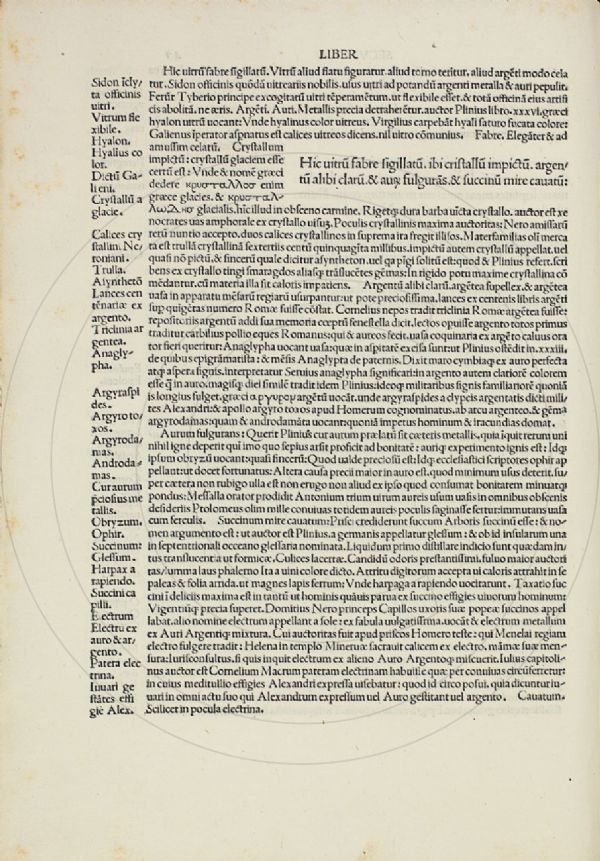 LIBER
Hic uitrū fabre sigillatū. Vitrū aliud flatu figuratur. aliud torno teritur. aliud argēti modo cela
tur. Sidon officinis quōdā uitreariis nobilis. usus uitri ad potandū argenti metalla & auri pepulit.
Ferūt Tyberio principe excogitatū uitri tēperamētum. ut flexibile esset. & totā officinā eius artifi
cis abolitā. ne æris. Argēti. Auri. Metallis precia detraherētur. auctor Plinius libro. xxxvi. græci
hyalon uitrū uocant: Vnde hyalinus color uitreus. Virgilius carpebāt hyali saturo fucata colore:
Galienus īperator aspnatus est calices uitreos dicens. nil uitro cōmunius. Fabre. Elegāter & ad
amussim celatū. Crystallum
impictū: crystallū glaciem esse
certū est: Vnde & nomē græci
dedere κρυσταλλοσ enim
græce glacies. & κρυσταλ
Hic uitrū fabre sigillatū. ibi cristallū impictū. argen
tū alibi clarū. & auȝ fulgurās. & succinū mire cauatū:
λωΔησ glacialis. hīc illud in obscæno carmine. Rigetqȝ dura barba uīcta crystallo. auctor est xe
nocrates uas amphorale ex crystallo uisuȝ. Poculis crystallinis maxima auctoritas: Nero amissarū
rerū nuntio accepto. duos calices crystallinos in suprema ira fregit illisos. Materfamilias olī merca
ta est trullā crystallinā sextertiis centū quinquagīta millibus. impictū autem crystallū appellat. uel
quasi nō pictū. & sincerū quale dicitur asyntheton. uel qa pīgi solitū est: quod & Plinius refert. scri
bens ex crystallo tingi smaragdos aliasqȝ trāslucētes gēmas: In rigido potu maxime crystallina cō
mēdantur. cū materia illa sit caloris impatiens. Argentū alibi clarū. argētea supellex. & argētea
uasa in apparatu mēsarū regiarū usurpantur: ut pote preciosissima. lances ex centenis libris argēti
sup quīgētas numero Romæ fuisse cōstat. Cornelius nepos tradit triclinia Romæ argētea fuisse:
repositoriis argentū addi sua memoria cœptū fenestella dicit. lectos opuisse argento totos primus
traditur carbilius pollio eques Romanus: qui & aureos fecit. uasa coquinaria ex argēto caluus ora
tor fieri queritur: Anaglypha uocant uasa: quæ in aspitatē excisa sunt ut Plinius ostēdit in. xxxiii.
de quibus epigrāmatista: & mēsis Anaglypta de paternis. Dixit maro cymbiaqȝ ex auro perfecta
atqȝ aspera signis. interpretatur Seruius anaglypha significari: in argento autem clariorē colorem
esse q̄ in auro. magisqȝ diei similē tradit idem Plinius: ideoqȝ militaribus signis familiariorē quoniā
is longius fulget. græci αργυρον argētū uocāt. unde argyraspides a clypeis argentatis dicti mili/
tes Alexandri: & apollo argyrotoxos apud Homerum cognominatus. ab arcu argenteo. & gēma
argyrodamas: quam & androdamāta uocant: quoniā impetus hominum & iracundias domat.
Aurum fulgurans: Querit Plinius cur aurum prælatū sit cæteris metallis. quia īquit rerum uni
nihil igne deperit qui imo quo sepius arsit proficit ad bonitatē: auriqȝ experimento ignis est: Idqȝ
ipsum obryzū uocant: quasi sincerū: Quod ualde preciosū est: Idqȝ ecclesiastici scriptores ophir ap
pellant: ut docet fortunatus: Altera causa precii maior in auro est. quod minimum usus deterit. su/
per cætera non rubigo ulla est non erugo non aliud ex ipso quod consumat bonitatem minuatqȝ
pondus: Messalla orator prodidit Antonium trium uirum aureis usum uasis in omnibus obscenis
desideriis Ptolomeus olim mille conuiuas totidem aureis: poculis saginasse fertur: immutans uasa
cum ferculis. Succinum mire cauatum: Prisci crediderunt succum Arboris succinū esse: & no/
men argumento est: ut auctor est Plinius. a germanis appellatur glessum: & ob id insularum una
in septentrionali occeano glessaria nominata. Liquidum primo distillare indicio sunt quædam in/
tus translucentia ut formicæ. Culices lacertæ. Candidū odoris prestantissimi. fuluo maior auctori
tas summa laus phalerno sta a uini colore dicto. Attritu digitorum accepta ui caloris attrahit in se
paleas & folia arrida. ut magnes lapis ferrum: Vnde harpaga a rapiendo uocitarunt. Taxatio suc
cini ī deliciis maxima est in tantū ut hominis quāuis parua ex succino effigies uiuorum hominum:
Vigentiūqȝ precia superet. Domitius Nero princeps Capillos uxoris suæ popeæ succinos appel
labat. alio nomine electrum appellant a sole: ex fabula uulgatissima. uocāt & electrum metallum
ex Auri Argentiqȝ mixtura. Cui auctoritas fuit apud priscos Homero teste: qui Menelai regiam
electro fulgere tradit: Helena in templo Mineruæ sacrauit calicem ex electro. māmæ suæ men/
sura: Iurisconsultus. si quis inquit electrum ex alieno Auro Argentoqȝ miscuerit. Iulius capitoli/
nus auctor est Cornelium Macrum pateram electrinam habuisse quæ per conuiuas circūferretur:
in cuius meditullio effigies Alexandri expressa uisebatur: quod id circo posui. quia dicuntur iu/
uari in omni actu suo qui Alexandrum expressum uel Auro gestitant uel argento. Cauatum.
Scilicet in pocula electrina.
Sidon īcly/
ta officinis
uitri.
Vitrum fle
xibile.
Hyalon.
Hyalius co
lor.
Dictū Ga/
lieni.
Crystallū a
glacie.
Calices cry
stallin. Ne/
roniani.
Trulla.
Aynthetō
Lances cen
tēnariæ ex
argento.
Triclinia ar
gentea.
Anagly/
pha.
Argyraspi
des.
Argyroto/
xos.
Argyroda/
mas.
Androda/
mas.
Cur aurum
pciosius me
tallis.
Obryzum.
Ophir.
Succinum:
Glessum.
Harpax a
rapiendo.
Succini ca
pilli.
Electrum
Electrū ex
auro & ar/
gento.
Patera elec
trina.
Iuuari ge
stātes effi
giē Alex.